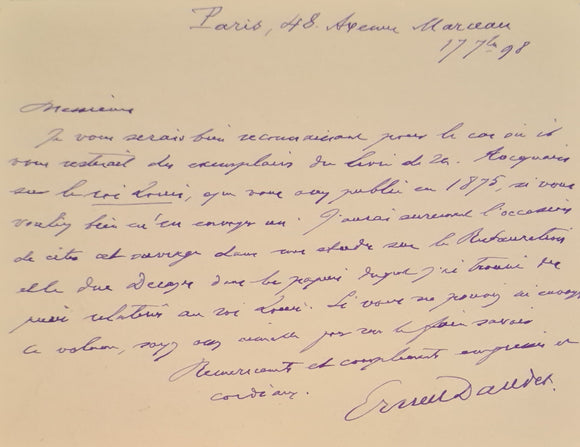 Paris, 48. Avenue Marceau
17 7bre 98
Messieurs
Je vous serais bien reconnaissant pour le cas où il
vous resterait des exemplaires du livre de M. Rocquain
sur le roi Louis, que vous avez publié en 1875, si vous
vouliez bien m'en envoyer un. J'aurai surement l'occasion
de citer cet ouvrage dans une étude sur la Restauration
et le duc Decazes dans les papiers duquel j'ai trouvé des
pièces relatives au roi Louis. Si vous ne pouvez m'envoyer
ce volume, soyez assez aimable pour me le faire savoir
Remerciements et compliments empressés et
cordiaux.
Ernest Daudet.